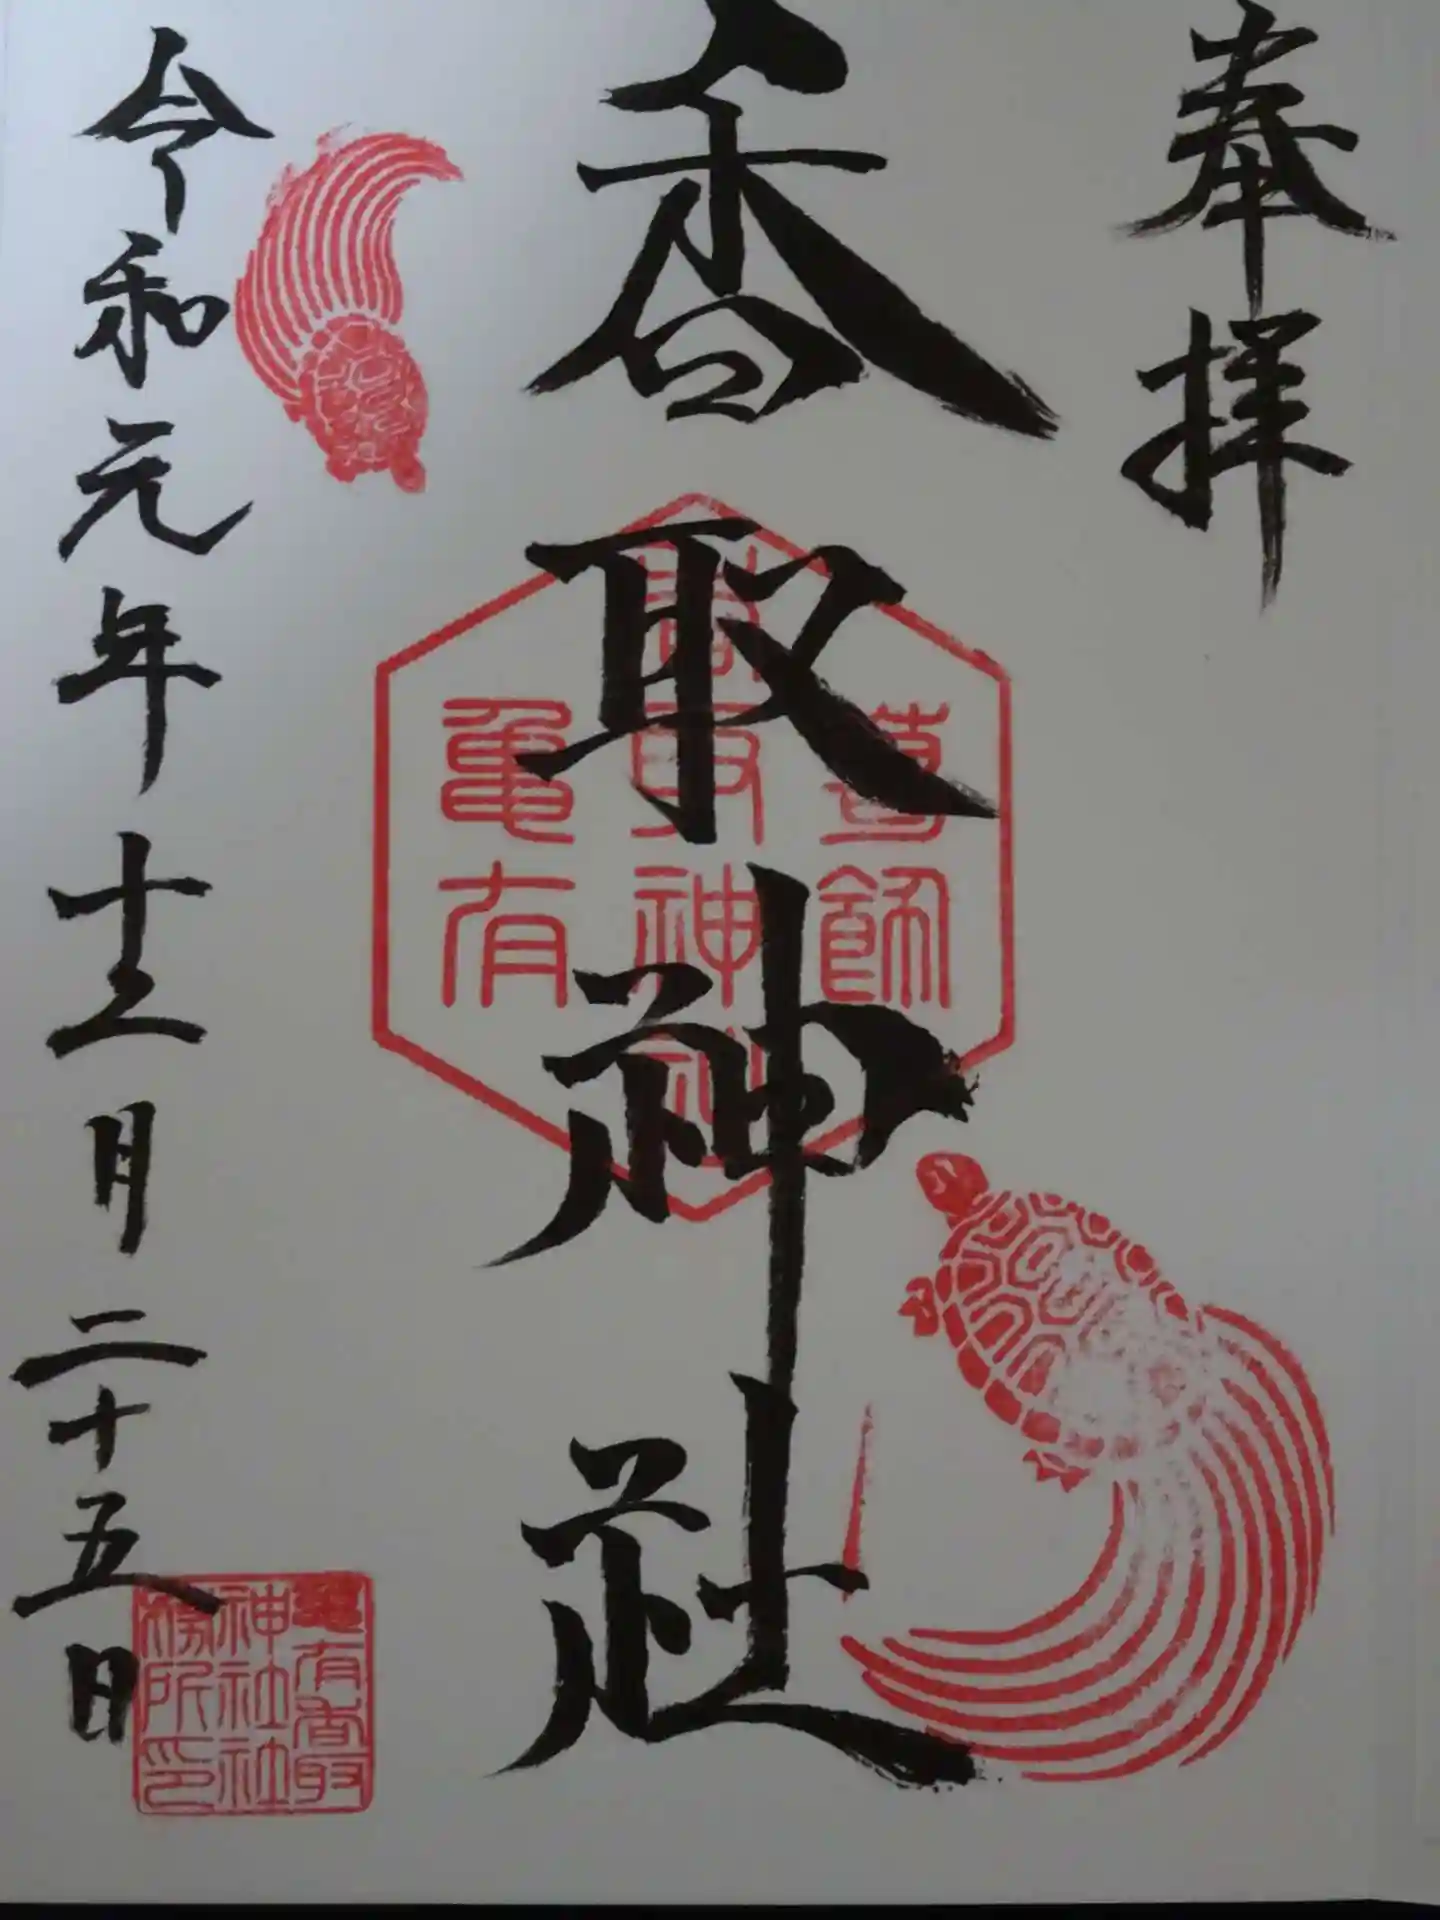 奉拝
香取神社
令和元年十二月二十五日
葛飾
香取神社
亀有
亀有香取
神社社
務所印